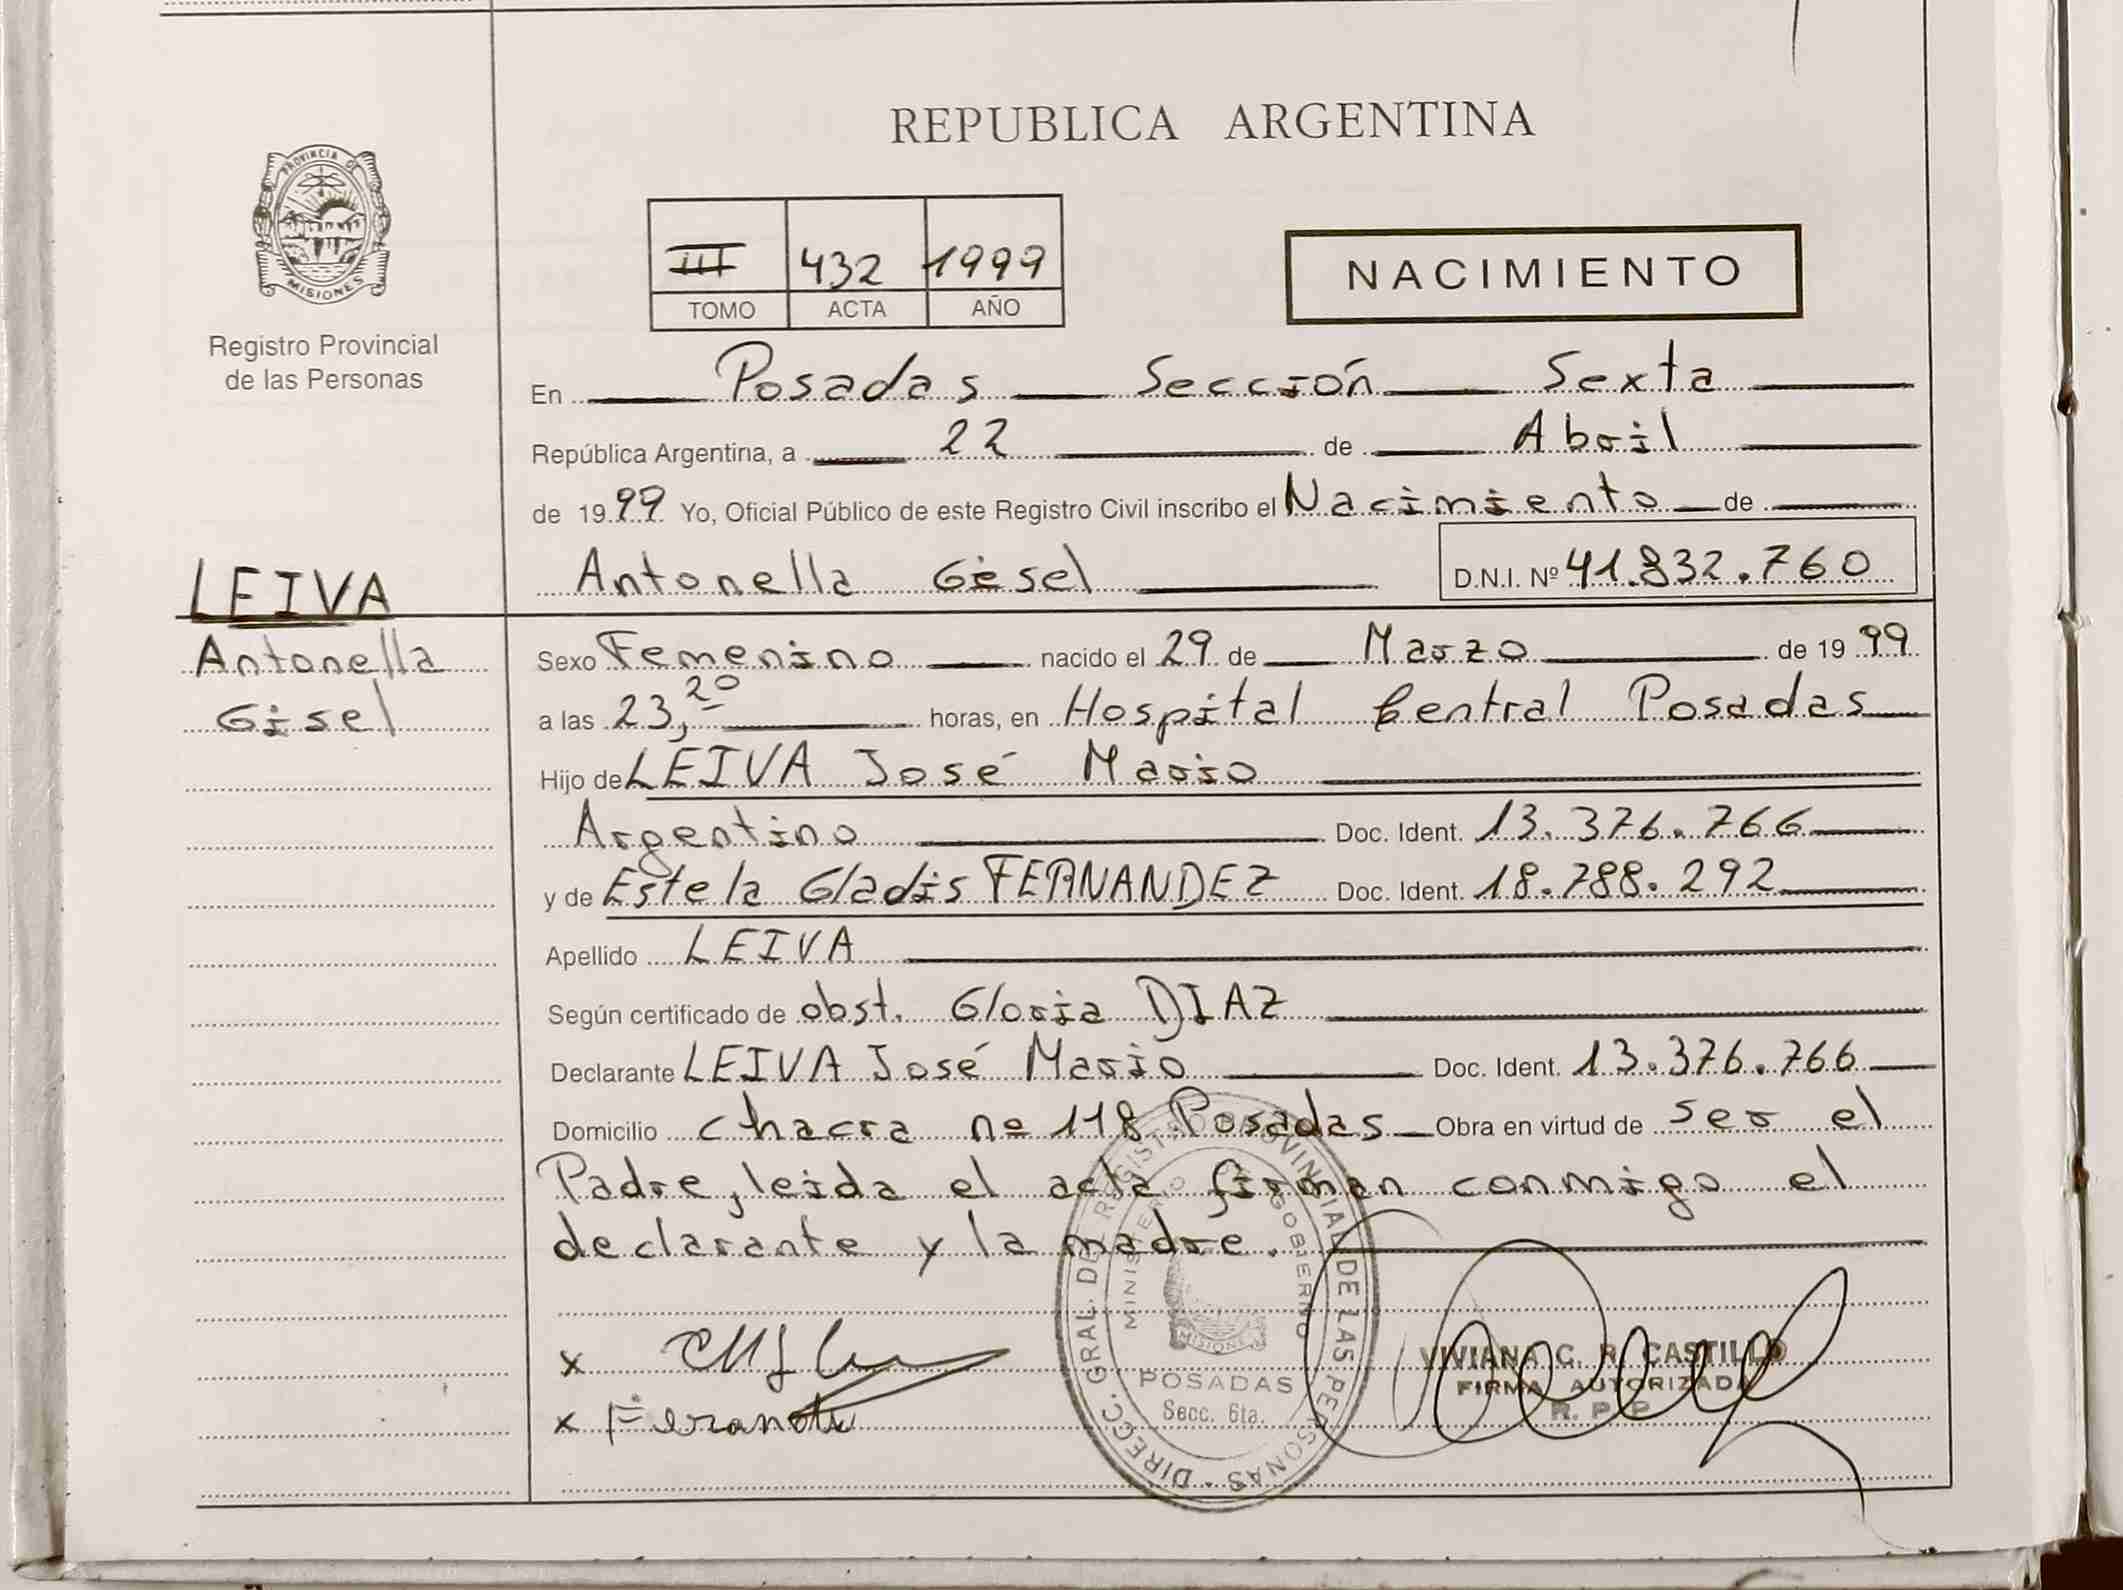 REPUBLICA ARGENTINA
PROVINCIA DE
MISIONES
Registro Provincial
de las Personas
III 432 1999
TOMO ACTA AÑO
NACIMIENTO
En Posadas Sección Sexta
República Argentina, a 22 de Abril
de 1999 Yo, Oficial Público de este Registro Civil inscribo el Nacimiento de
Antonella Gisel D.N.I. Nº 41.832.760
LEIVA
Antonella
Gisel
Sexo Femenino nacido el 29 de Marzo de 1999
a las 23,20 horas, en Hospital Central Posadas
Hijo de LEIVA José Mario
Argentino Doc. Ident. 13.376.766
y de Estela Gladis FERNANDEZ Doc. Ident. 18.788.292
Apellido LEIVA
Según certificado de obst. Gloria DIAZ
Declarante LEIVA José Mario Doc. Ident. 13.376.766
Domicilio chacra nº 118 Posadas Obra en virtud de ser el
Padre, leida el acta firman conmigo el
declarante y la madre.
DIREC. GRAL. DEL REGISTRO PROVINCIAL DE LAS PERSONAS
MINISTERIO DE GOBIERNO
MISIONES
POSADAS
Secc. 6ta.
x
x
VIVIANA G. R. CASTILLO
FIRMA AUTORIZADA
R. P. P.